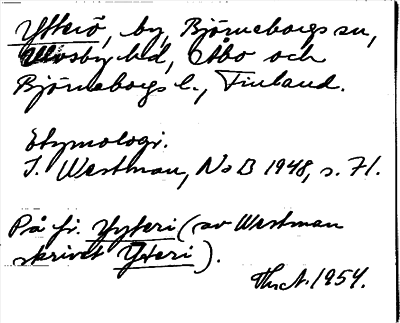 Ytterö, by, Björneborgs sn,
Ulvsby hd, Åbo och
Björneborgs l., Finland.
Etymologi.
I. Westman, NoB 1948, s. 71.
På fi. Yyteri (av Westman
skrivet Yteri).
1954.